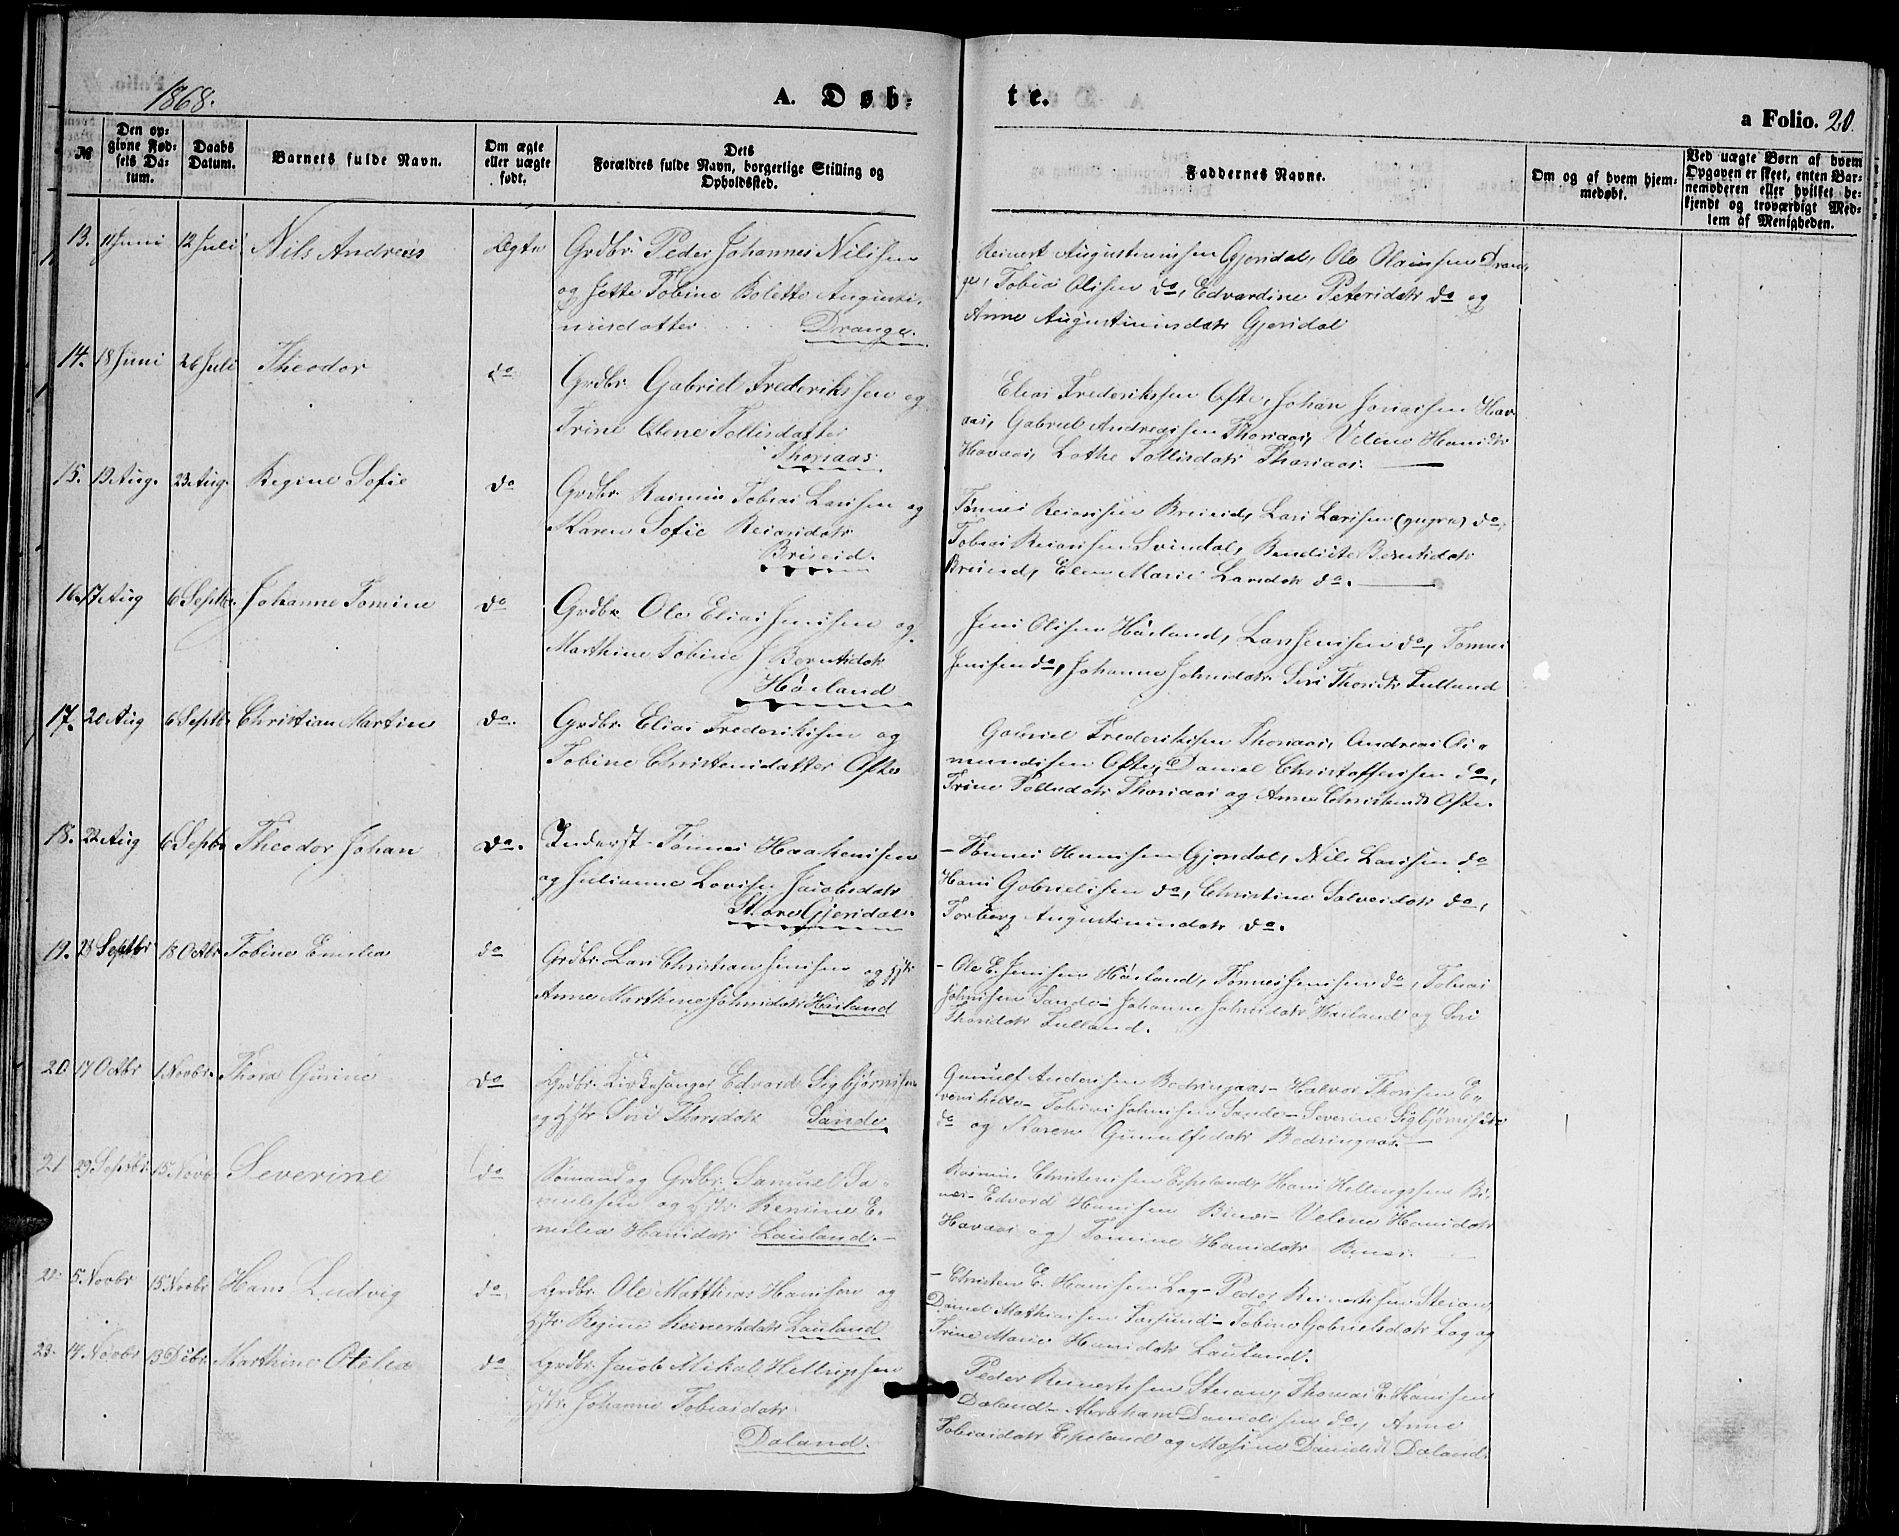 1868.
A. Døb-
te.
a Folio. 20.
№
Den op-
givne Fød-
sels Da-
tum.
Daabs
Datum.
Barnets fulde Navn.
Om ægte
eller uægte
født.
Dets
Forældres fulde Navn, borgerlige Stilling og
Opholdssted.
Faddernes Navne.
Om og af hvem hjem-
medøbt.
Ved uægte Børn af hvem
Opgaven er skeet, enten Bar-
nemoderen eller hvilket be-
kjendt og troværdigt Med-
lem af Menigheden.
13. 11 Juni 12 Juli Nils Andreas Ægte Grdbr. Peder Johannes Nilssen
og Jette Tobine Bolette Augusti-
nusdatter Drange.
Reinert Augustinussen Gjersdal, Ole Olaussen Dran-
ge, Tobias Olssen do, Edvardine Petersdatr do og
Anne Augustinusdatr Gjersdal
14. 18 Juni 26 Juli Theodor do Grdbr. Gabriel Frederikssen og
Trine Olene Tollisdatter
Thorsaas
Elias Frederikssen Ofte, Johan Jonassen Hav-
aas, Gabriel Andreassen Thorsaas, Velene Hansdtr
Havaas, Lothe Tollisdatr Thorsaas.
15. 19 Aug. 23 Aug. Regine Sofie do Grdbr. Rasmus Tobias Larssen og
Karen Sofie Reiarsdatr
Briseid.
Tønnes Reiarssen Briseid, Lars Larssen (yngre) do,
Tobias Reiarssen Svindal, Bendicte Berntsdatr
Briseid, Elen Marie Larsdatr do.
16. 17 Aug 6 Septbr. Johanne Tomine do Grdbr. Ole Elias Jenssen og
Marthine Tobine Berntsdatr
Høiland
Jens Olssen Høiland, Lars Jenssen do, Tønnes
Jenssen do, Johanne Johnsdatr Siri Thorsdtr Tulland
17. 20 Aug 6 Septbr Christian Martin do. Grdbr. Elias Frederikssen og
Tobine Christensdatter Ofte
Gabriel Frederikssen Thorsaas, Andreas Os-
mundssen Ofte, Daniel Christoffersen do,
Trine Tollisdatr Thorsaas og Anne Christensdr Ofte.
18. 22 Aug 6 Septbr Theodor Johan do. Inderst Tønnes Haakenssen
og Julianne Lovise Jacobsdatr
Store Gjersdal.
- Tønnes Hanssen Gjersdal, Nils Larssen do
Hans Gabrielssen do, Christine Salvesdatr do,
Torborg Augustinusdatr do.
19. 23 Septbr 18 Octbr Tobine Emilie do Grdbr. Lars Christian Jenssen og Hstr
Anne Marthine Johnsdatr Høiland
- Ole E. Jenssen Høiland, Tønnes Jenssen do, Tobias
Johnssen Sande - Johanne Johnsdatr Høiland og Siri
Thorsdatr Tulland.
20 17 Octbr 1 Novbr. Thora Gusine do Grdbr. Kirkesanger Edvard Sigbjørnssen
og Hstr Siri Thorsdatr Sande
Gunulf Anderssen Bedringaas - Halvor Thorssen E-
Tobias Johnssen Sande - Severine Sigbjørnsdtr
do og Karen Gunulfsdatr Bedringaas
21 29 Septbr 15 Novbr Severine do Sømand og Grdbr. Samuel Sa-
muelssen og Hstr Renine E-
milie Hansdatr Lauland.
Rasmus Christenssen Espeland, Hans Hellingssen Bi-
nes - Edvard Hanssen Bines - Velene Hansdatr
Havaas og Tomine Hansdatr Bines.
22. 5 Novbr 15 Novbr Hans Ludvig do. Grdbr. Ole Matthias Hanssen og
Hstr Regine Reinertsdatr Lauland
- Christen E. Hanssen Lag - Peder Reinertssen Steran,
Daniel Mathiassen Farsund - Tobine Gabrielsdatr Lag og
Trine Marie Hansdatr Lauland.
23. 14 Novbr 13 Decbr. Marthine Otelie do Grdbr. Jacob Mikal Hellingssen
Hstr. Johanne Tobiasdatr
Daland.
Peder Reinertssen Steran, Thomas E. Hanssen
Daland - Abraham Danielssen do, Anne
Tobiasdatr Espeland og Masine Danielsdtr Daland.